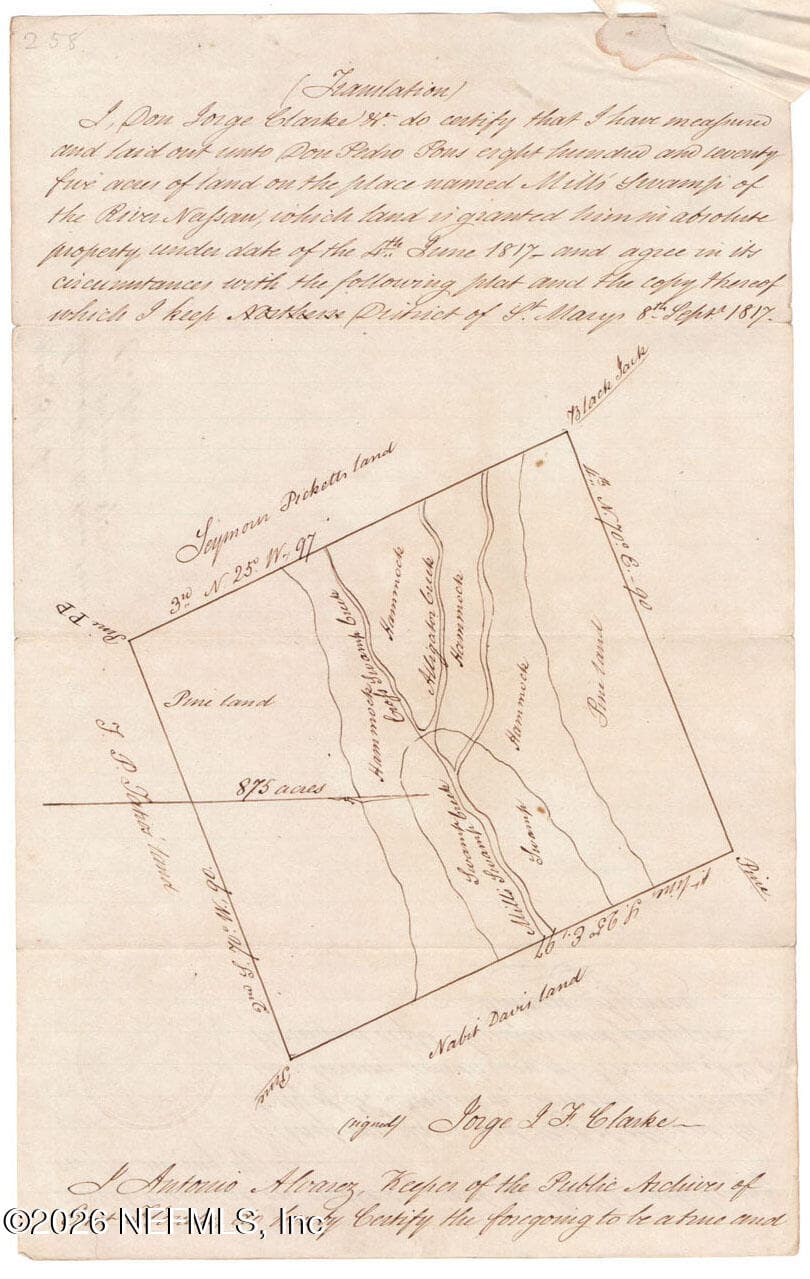 258
(Translation)
I, Don Jorge Clarke &c. do certify that I have measured
and laid out unto Don Pedro Pons eight hundred and seventy
five acres of land on the place named Mills Swamp of
the River Nassau, which land is granted him in absolute
property under date of the 4th June 1817 - and agree in its
circumstances with the following plat and the copy thereof
which I keep Northern District of St. Marys 8th Septr 1817 -
Black Jack
Seymour Picketts land
3rd N. 25° W - 97
4th N. 70° E - 90
Pine PP
Pine land
Hammock
Swamp Creek
Hammock
Alligator Creek
Hammock
Hammock
Pine land
875 acres
Swamp Creek
Mills Swamp
Swamp
Pine
1st line S. 25° E. 97
2nd S. 70° W. 90
Nabit Davis land
Pine
(signed) Jorge J. F. Clarke
I Antonio Alvarez, Keeper of the Public Archives of
Certify the foregoing to be a true and
©2026 NEFMLS, Inc